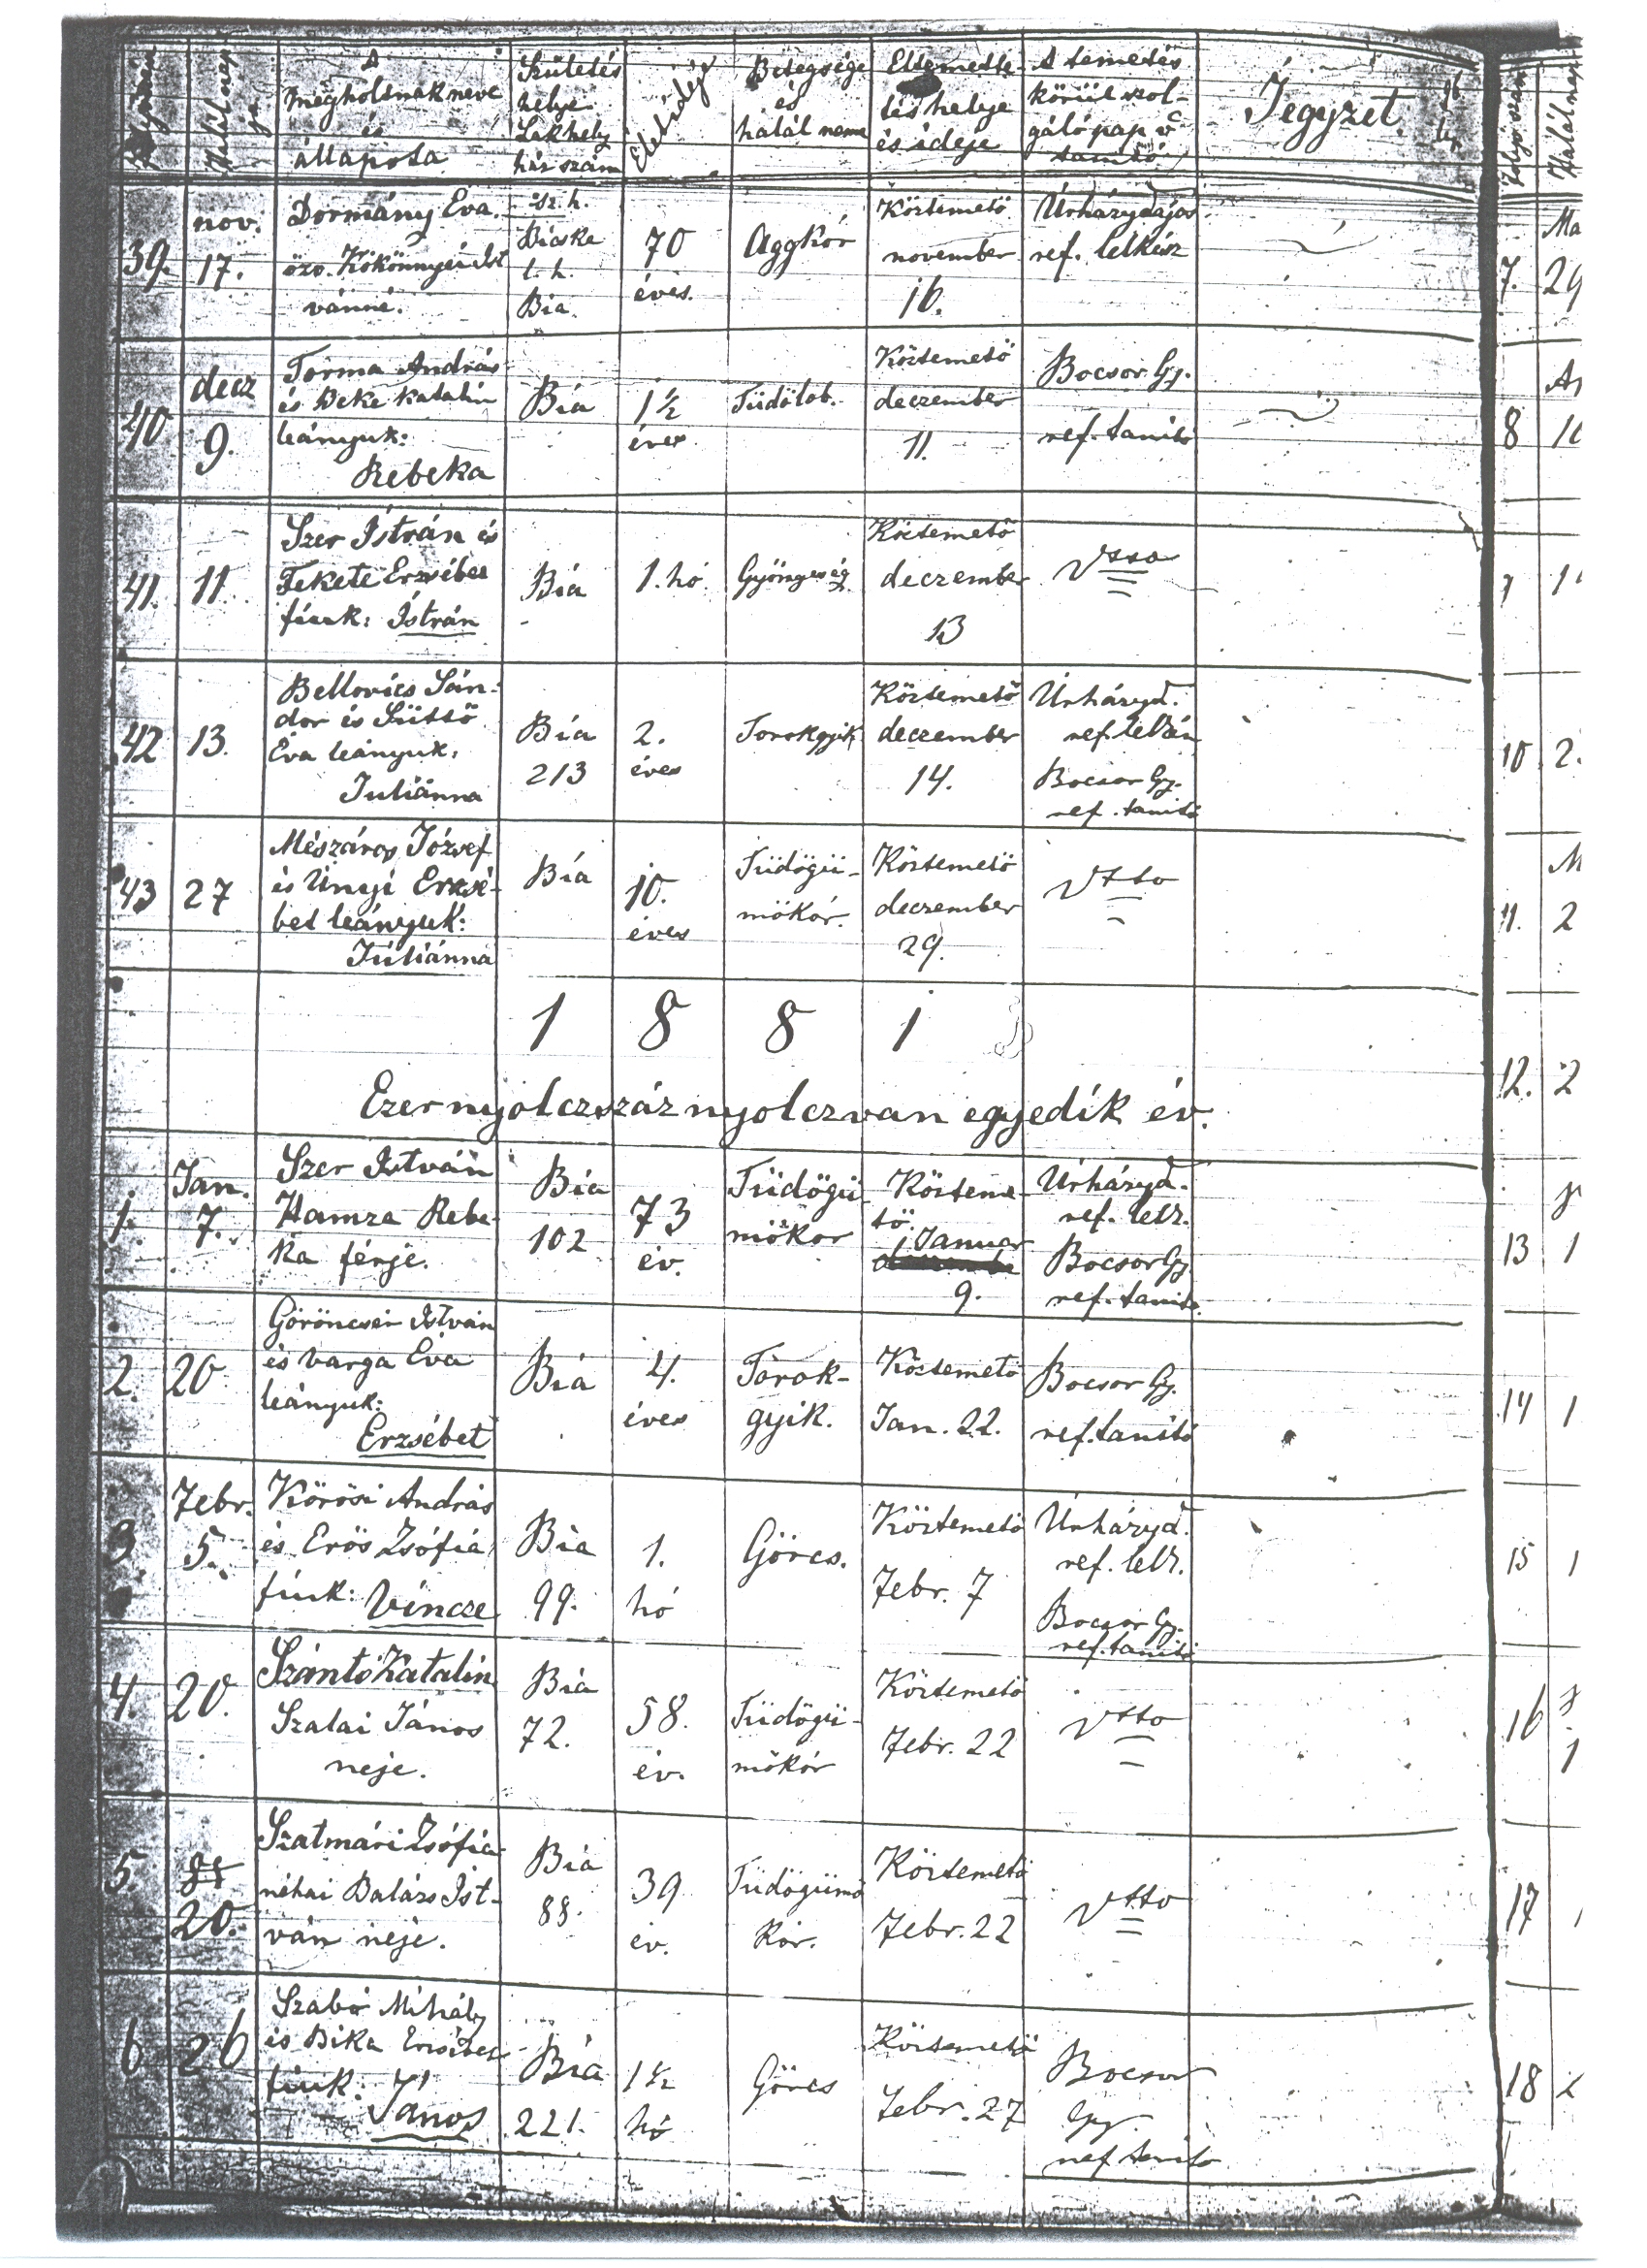 A
megholtnak neve
és
állapota
Születés
helye
Lakhely
ház szám
Életidéje
Betegsége
és
halál neme
Eltemette-
tés helye
és ideje
A temetés
körül szol-
gáló pap v
tanító
Jegyzet.
39.
nov.
17.
Dormány Éva.
özv. Kökönnyei Ist
vánné.
sz. h.
Bicske
l. h.
Bia.
70
éves.
Aggkór
Köztemető
november
16.
Úrházy Lajos
ref. lelkész
40
decz
9.
Torma András
és Beke Katalin
leányuk:
Rebeka
Bia
1½
éves
Tüdőlob.
Köztemető
deczember
11.
Bocsor Gy.
ref. tanító
41.
11.
Szer István és
Fekete Erzsébet
fiuk: István
Bia
1. hó.
Gyöngeség
Köztemető
deczember
13
Vtto
42
13.
Bellovics Sán-
dor és Süttő
Éva leányuk,
Juliánna
Bia
213
2.
éves
Torokgyik
Köztemető
deczember
14.
Úrházyd.
Bocsor Gy.
ref. tanító
43
27
Mészáros József
és Unyi Erzsé-
bet leányuk:
Juliánna
Bia
10.
éves
Tüdőgü-
mőkór.
Köztemető
deczember
29.
Vtto
1 8 8 1
Ezernyolczszáznyolczvan egyedik év.
1.
Jan.
7.
Szer István
Hamza Rebe-
ka férje.
Bia
102
73
év.
Tüdőgü-
mőkor
Közteme-
tő.
Januar
9.
Úrházyd.
ref. lelk.
Bocsor Gy.
ref. tanító.
2.
20
Göröncsér István
és Varga Éva
leányuk:
Erzsébet
Bia
4.
éves
Torok-
gyik.
Köztemető
Jan. 22.
Bocsor Gy.
ref. tanító
3
Febr.
5.
Körösi András
és Erős Zsófia
fiuk: Vincze
Bia
99.
1.
hó
Görcs.
Köztemető
Febr. 7
Úrházyd.
ref. lelk.
Bocsor Gy.
ref. tanító
4.
20.
Szántó Katalin
Szalai János
neje.
Bia
72.
58.
év.
Tüdőgü-
mőkór
Köztemető
Febr. 22
Vtto
5.
20.
Szatmári Zsófia
néhai Balázs Ist-
ván neje.
Bia
88.
39
év.
Tüdőgümő
kór.
Köztemető
Febr. 22
Vtto
6
26
Szabó Mihály
és Bika Erzsébet
fiuk:
János
Bia
221.
1½
hó
Görcs
Köztemető
Febr. 27
Bocsor
Gy
ref tanító
7.
29
8
10
11.
2
12.
2
13
1
14
1
15
1
16
1
17
18